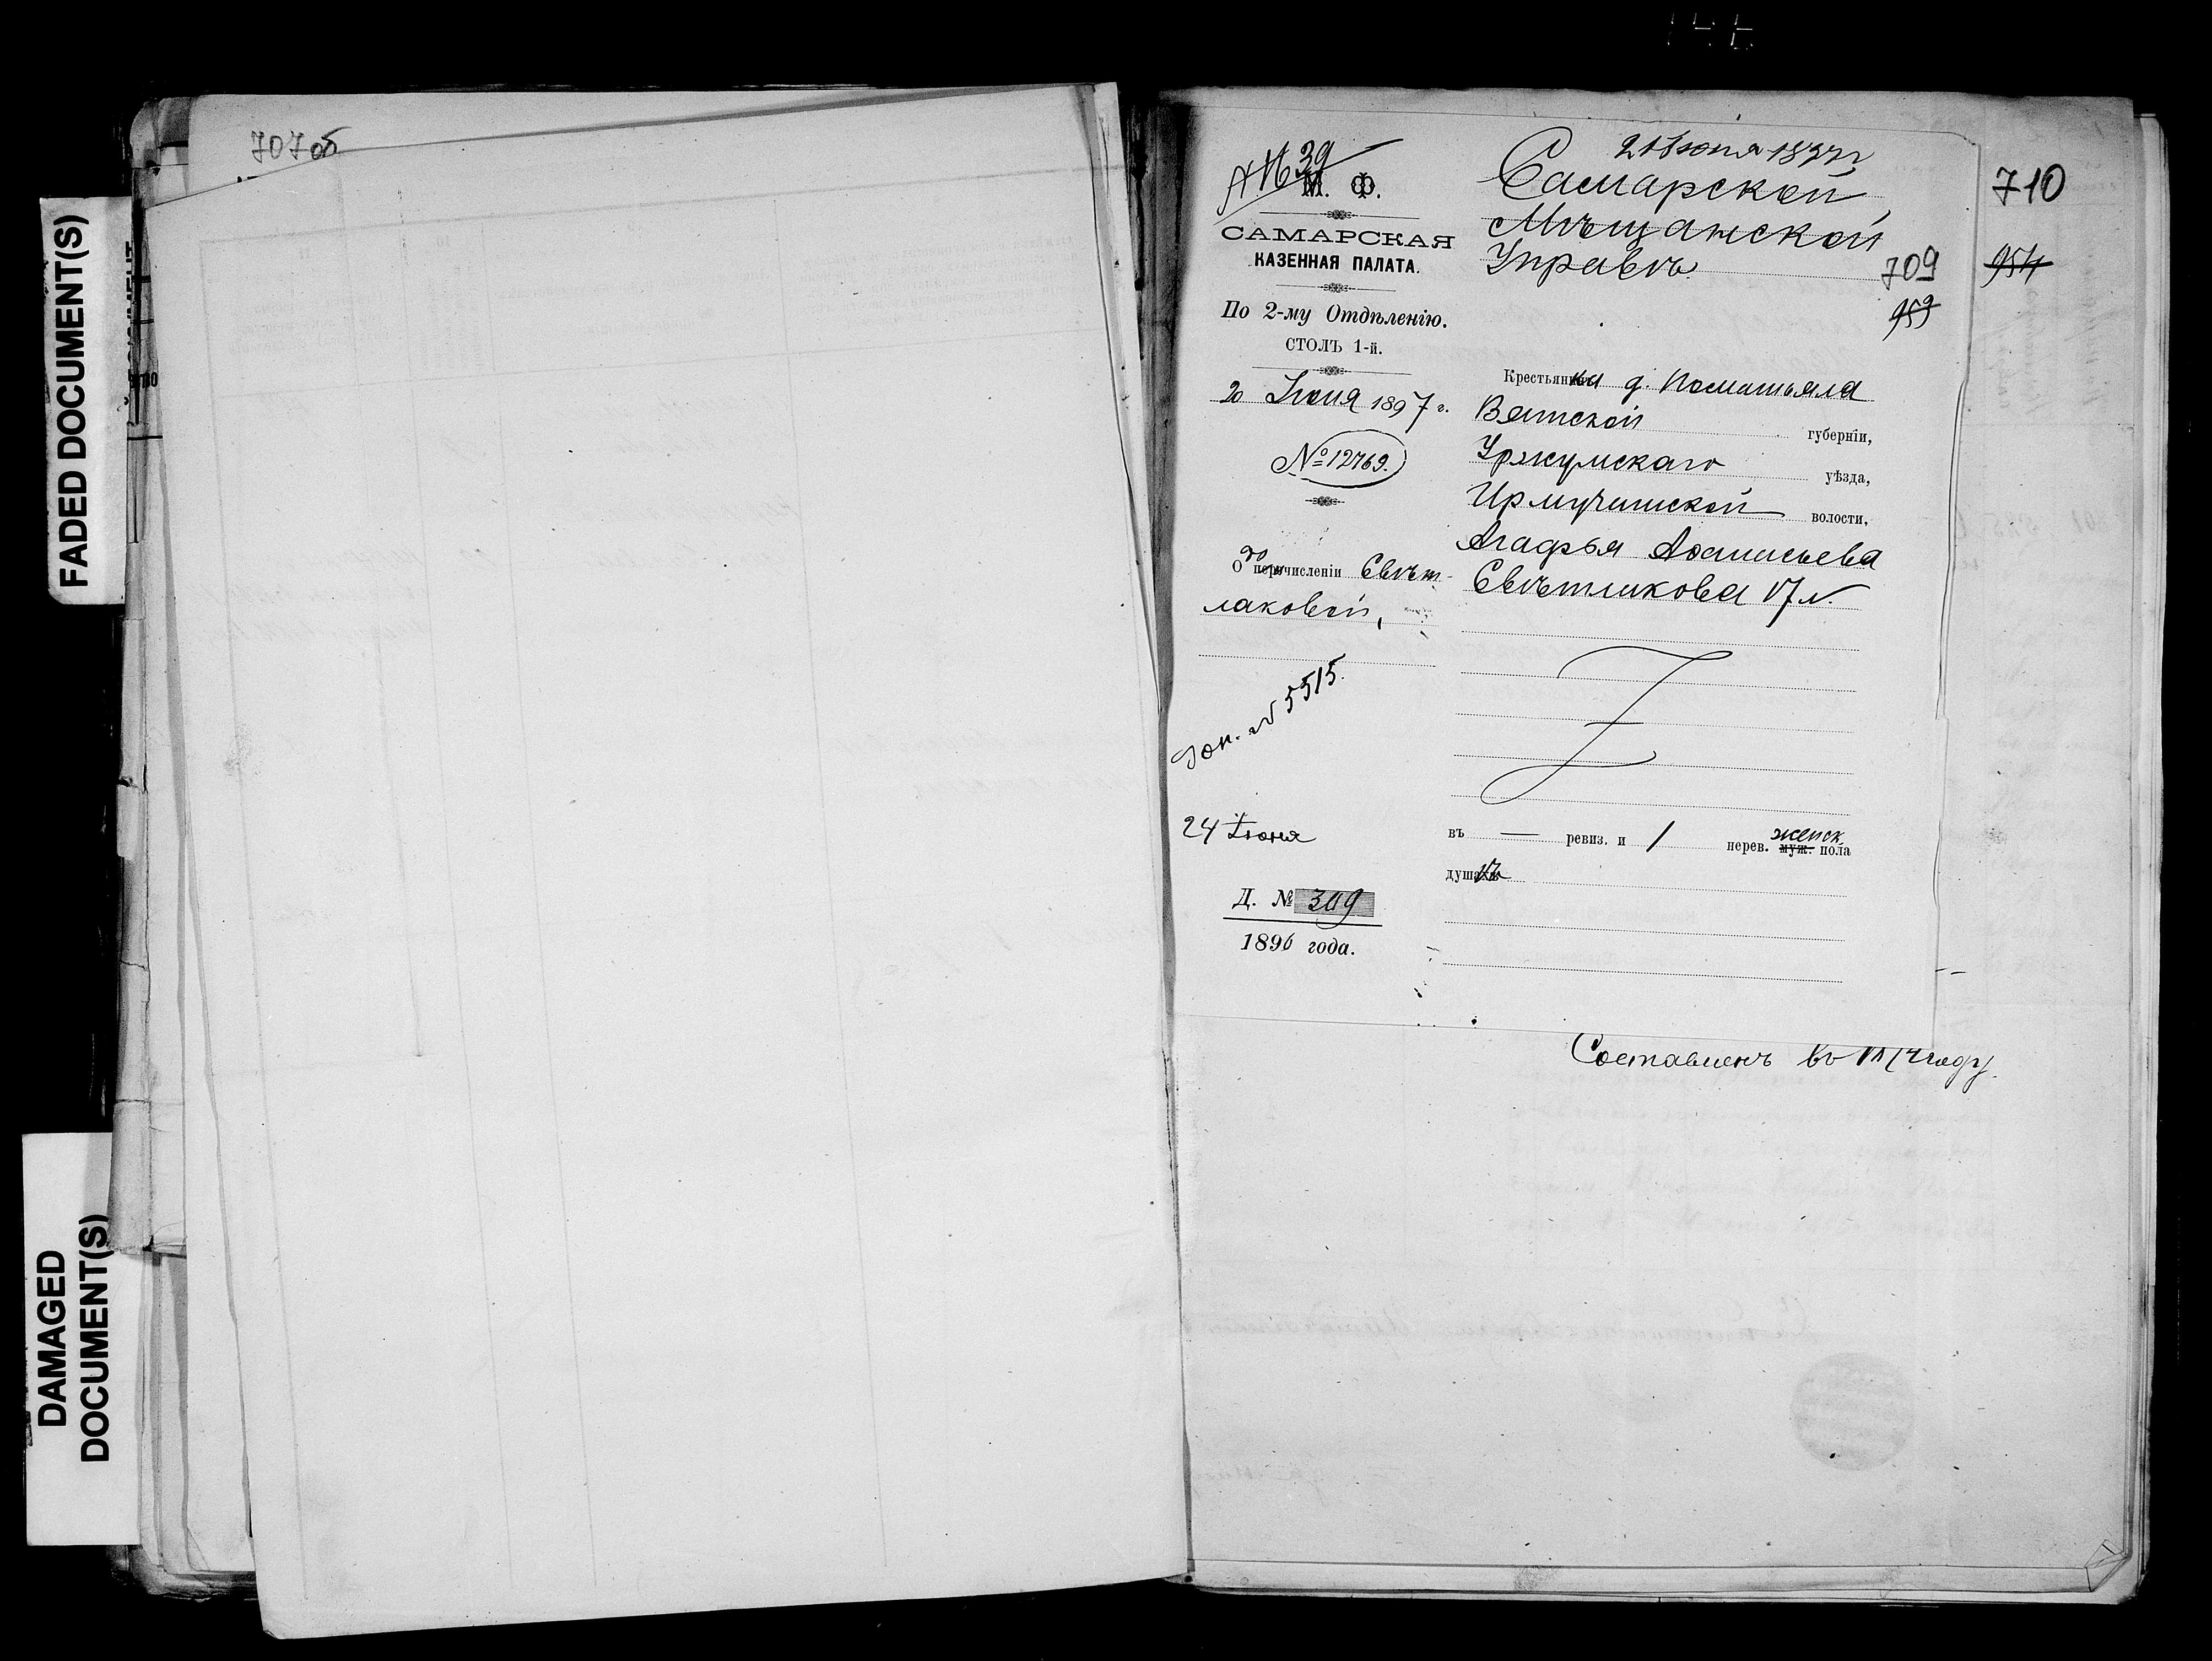 707 об
FADED DOCUMENT(S)
DAMAGED
DOCUMENT(S)
710
954
№ 39
М. Ф.
САМАРСКАЯ
КАЗЕННАЯ ПАЛАТА.
По 2-му Отдѣленію.
СТОЛЪ 1-й.
20 Іюня 1897 г.
№ 12769.
О перечисленіи Свѣт-
лаковой,
№ 5515.
24 Іюня
Д. № 309
1896 года.
21 Іюня 1897 г
Самарской
Мѣщанской
Управѣ
709
959
Крестьянка д.
Вятской губерніи,
Уржумскаго уѣзда,
волости,
Агафья Аѳанасьева
Свѣтлакова 17 л.
въ — ревиз. и 1 перев. муж. женск. пола
душахъ
Составленъ въ году